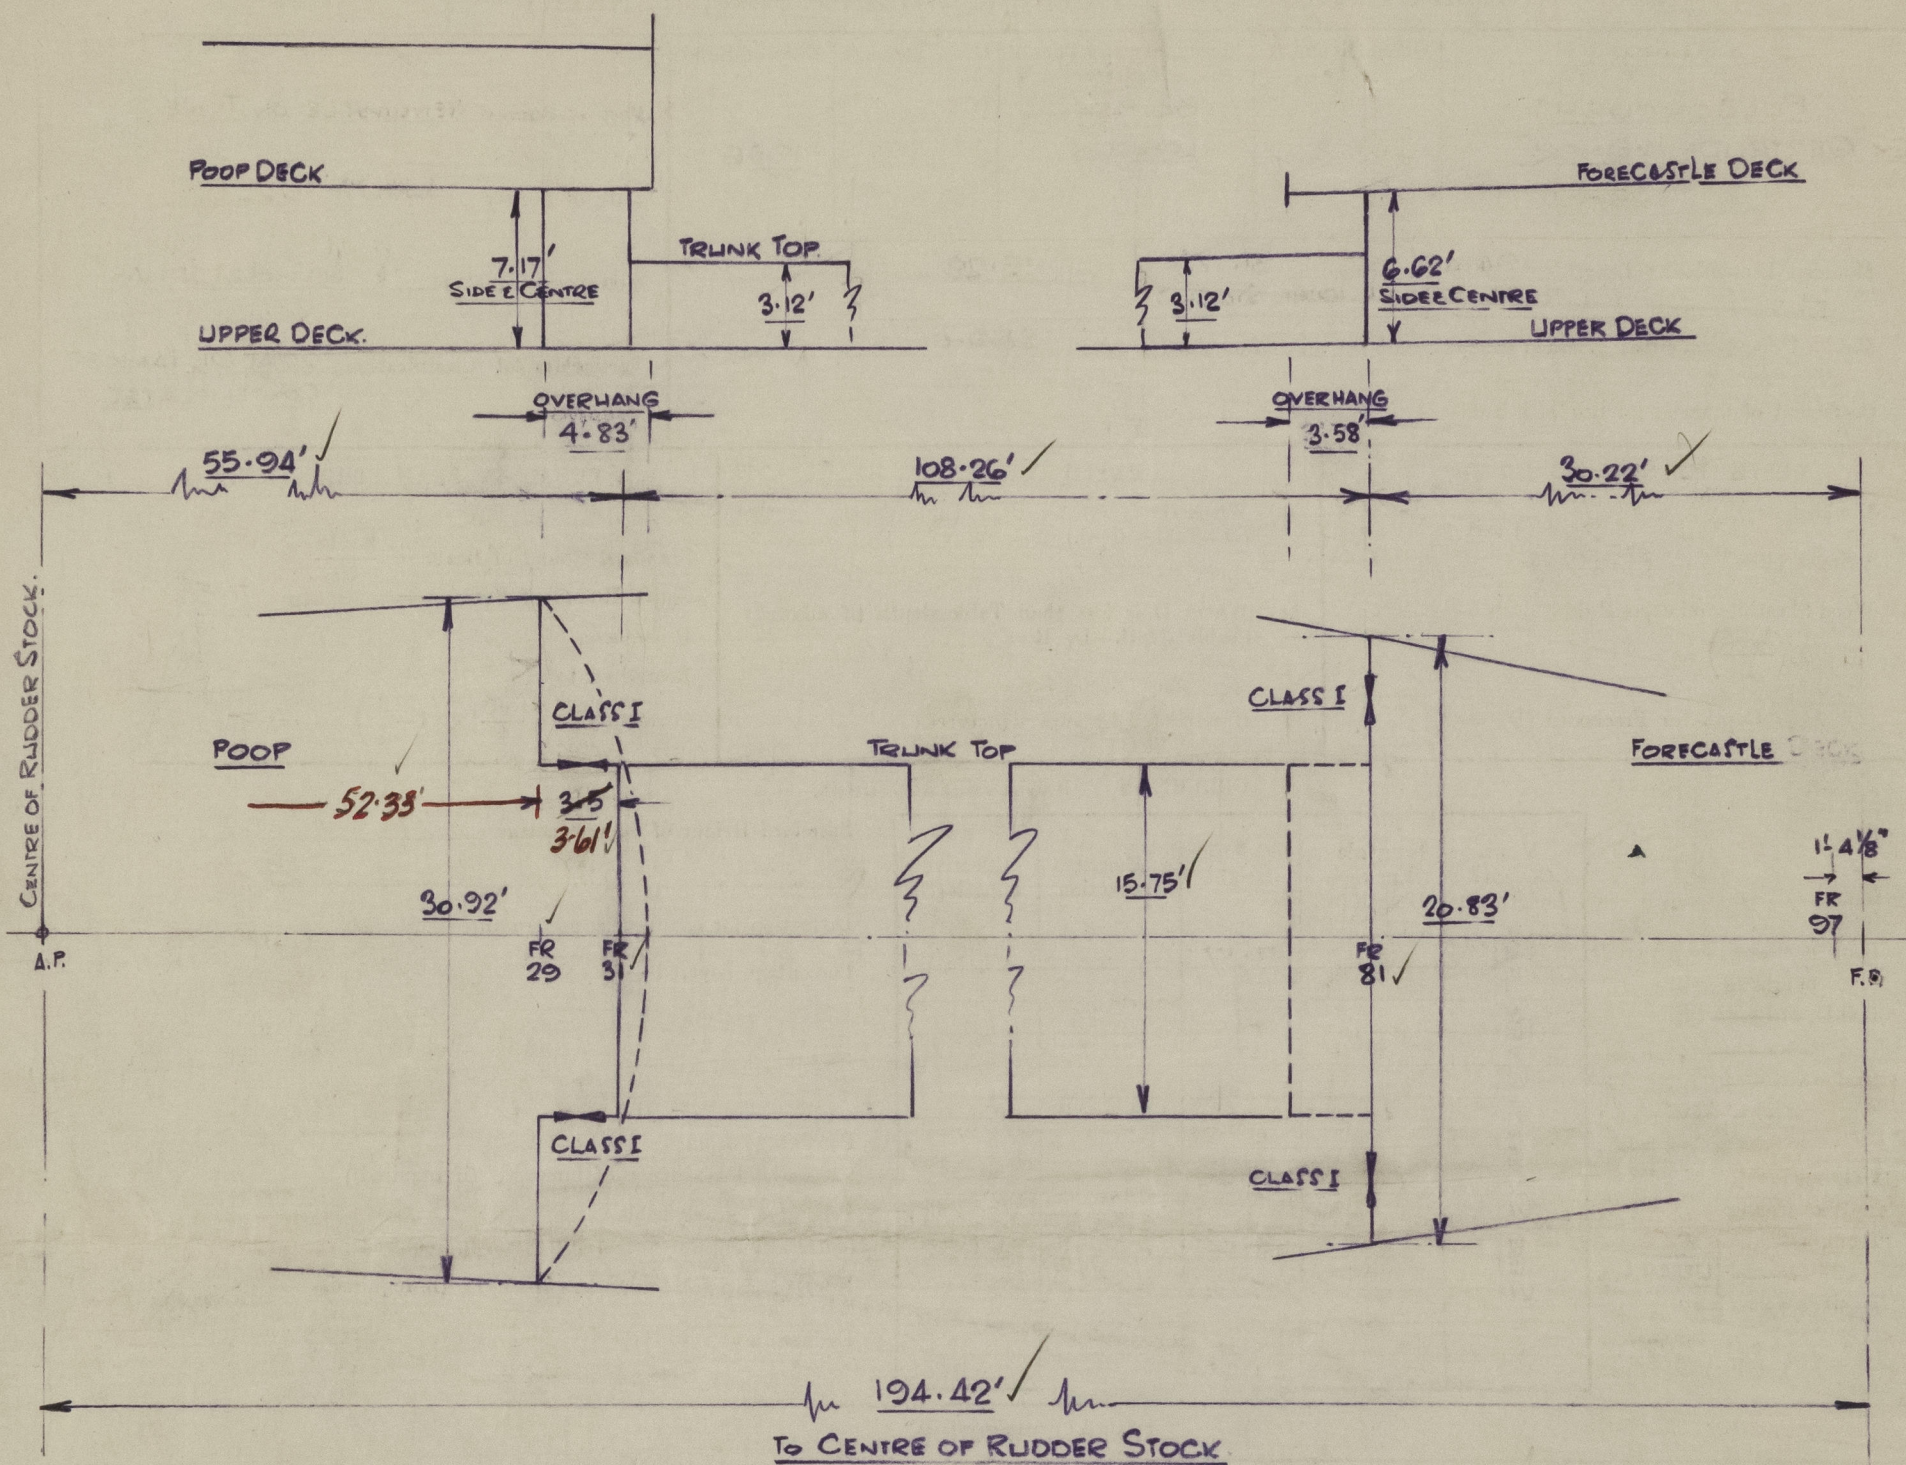 POOP DECK
FORECASTLE DECK
TRUNK TOP.
7.17'
SIDE & CENTRE
3.12'
3.12'
6.62'
SIDE & CENTRE
UPPER DECK.
UPPER DECK
OVERHANG
4.83'
OVERHANG
3.58'
55.94'
108.26'
30.22'
CENTRE OF RUDDER STOCK.
CLASS I
CLASS I
POOP
TRUNK TOP
FORECASTLE
52.33'
3.5
3.61'
1'-4⅛"
FR
97
15.75'
30.92'
20.83'
A.P.
FR
29
FR
31
FR
81
F.P.
CLASS I
CLASS I
194.42'
TO CENTRE OF RUDDER STOCK.